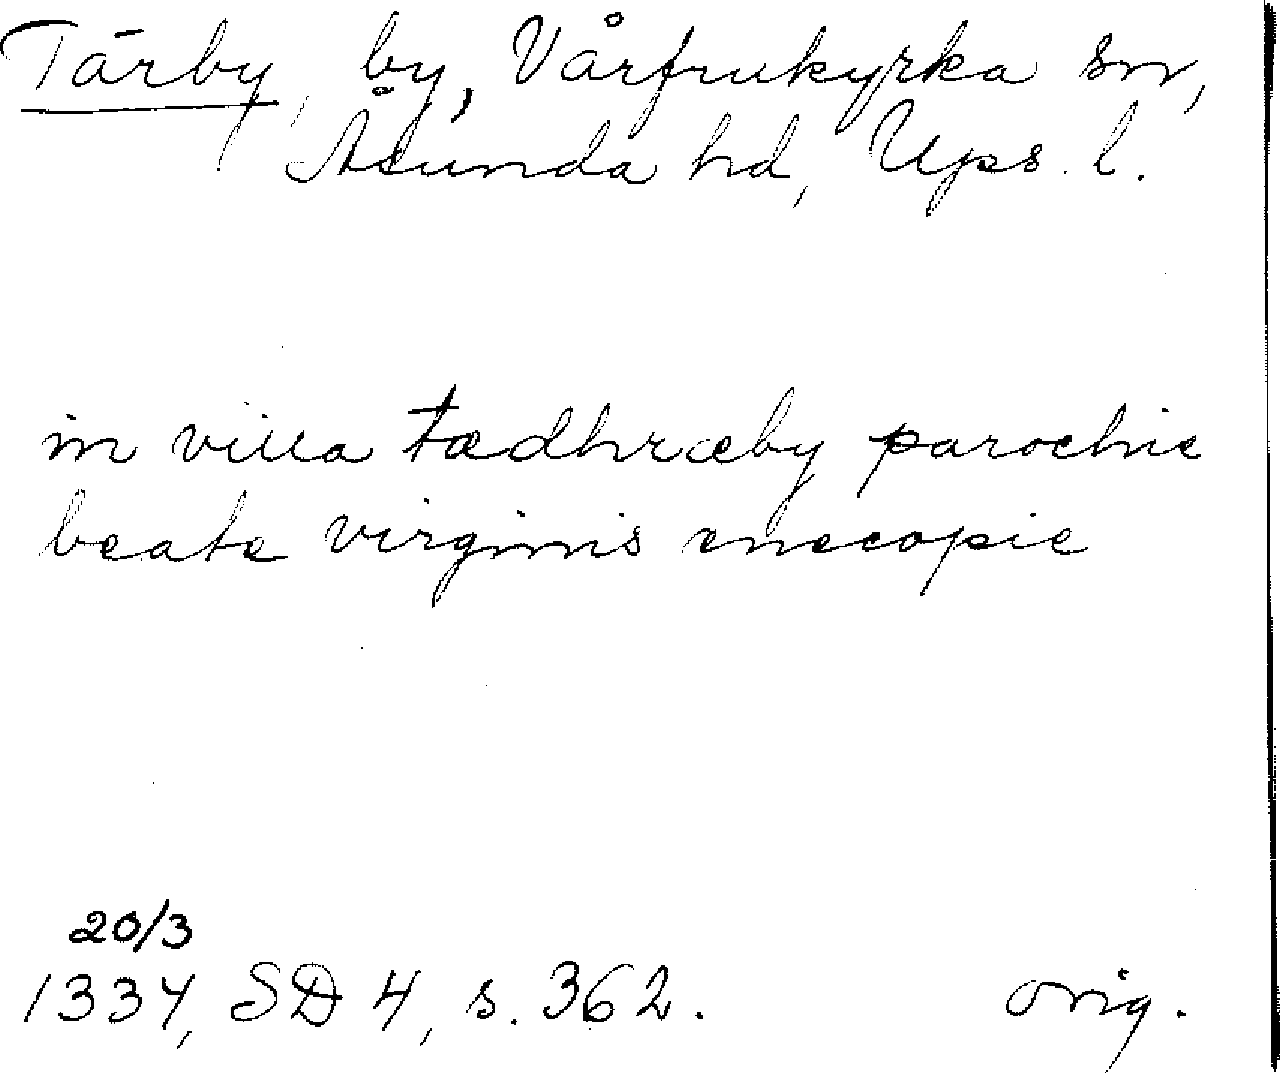 Tärby, by, Vårfrukyrka sn,
Åsunda hd, Upps. l.
in villa tædhræby parochie
beate virginis enecopie
20/3
1334, SD 4, s. 362.
orig.